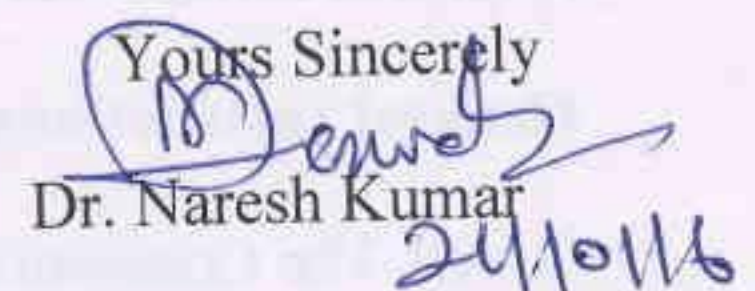 Yours Sincerely
Dr. Naresh Kumar
24/10/16